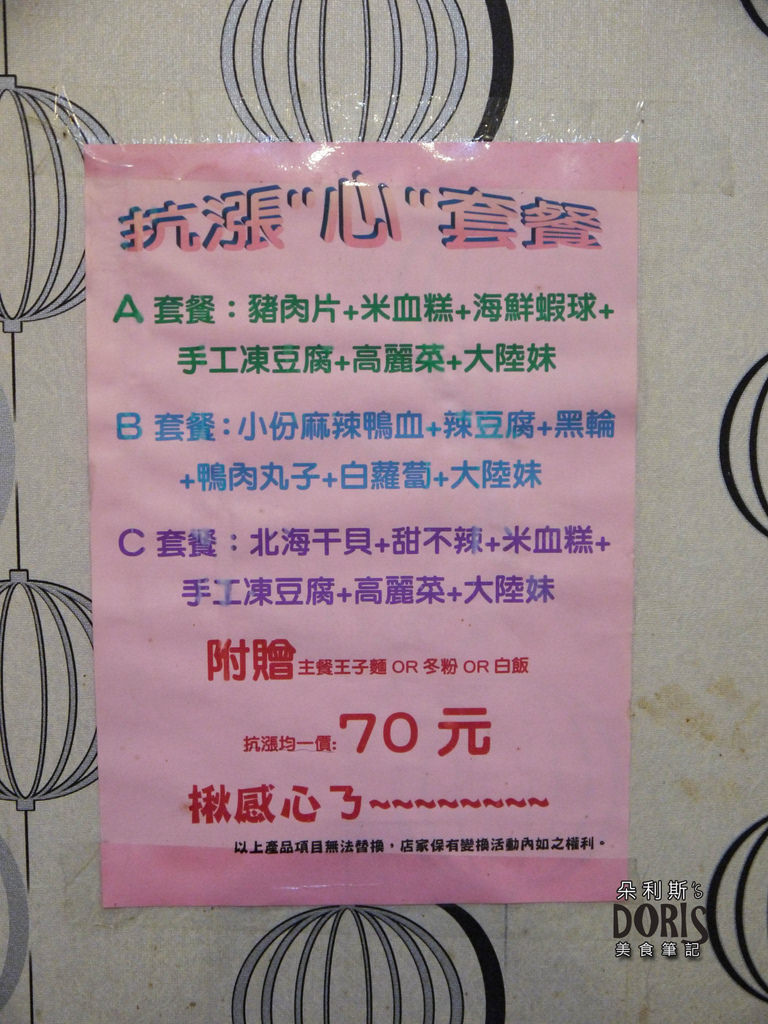 抗漲"心"套餐
A 套餐：豬肉片+米血糕+海鮮蝦球+
手工凍豆腐+高麗菜+大陸妹
B 套餐：小份麻辣鴨血+辣豆腐+黑輪
+鴨肉丸子+白蘿蔔+大陸妹
C 套餐：北海干貝+甜不辣+米血糕+
手工凍豆腐+高麗菜+大陸妹
附贈主餐王子麵 OR 冬粉 OR 白飯
抗漲均一價:70 元
揪感心ㄋ~~~~~~~~~
以上產品項目無法替換，店家保有變換活動內如之權利。
朵利斯's
DORIS
美食筆記